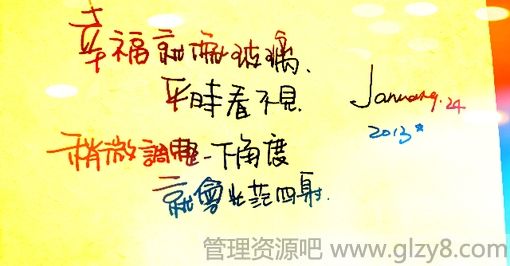 幸福就像玻璃、
平時看不見.
稍微調整一下角度
就會光茫四射.
January.24
2013*
管理资源吧 www.glzy8.com